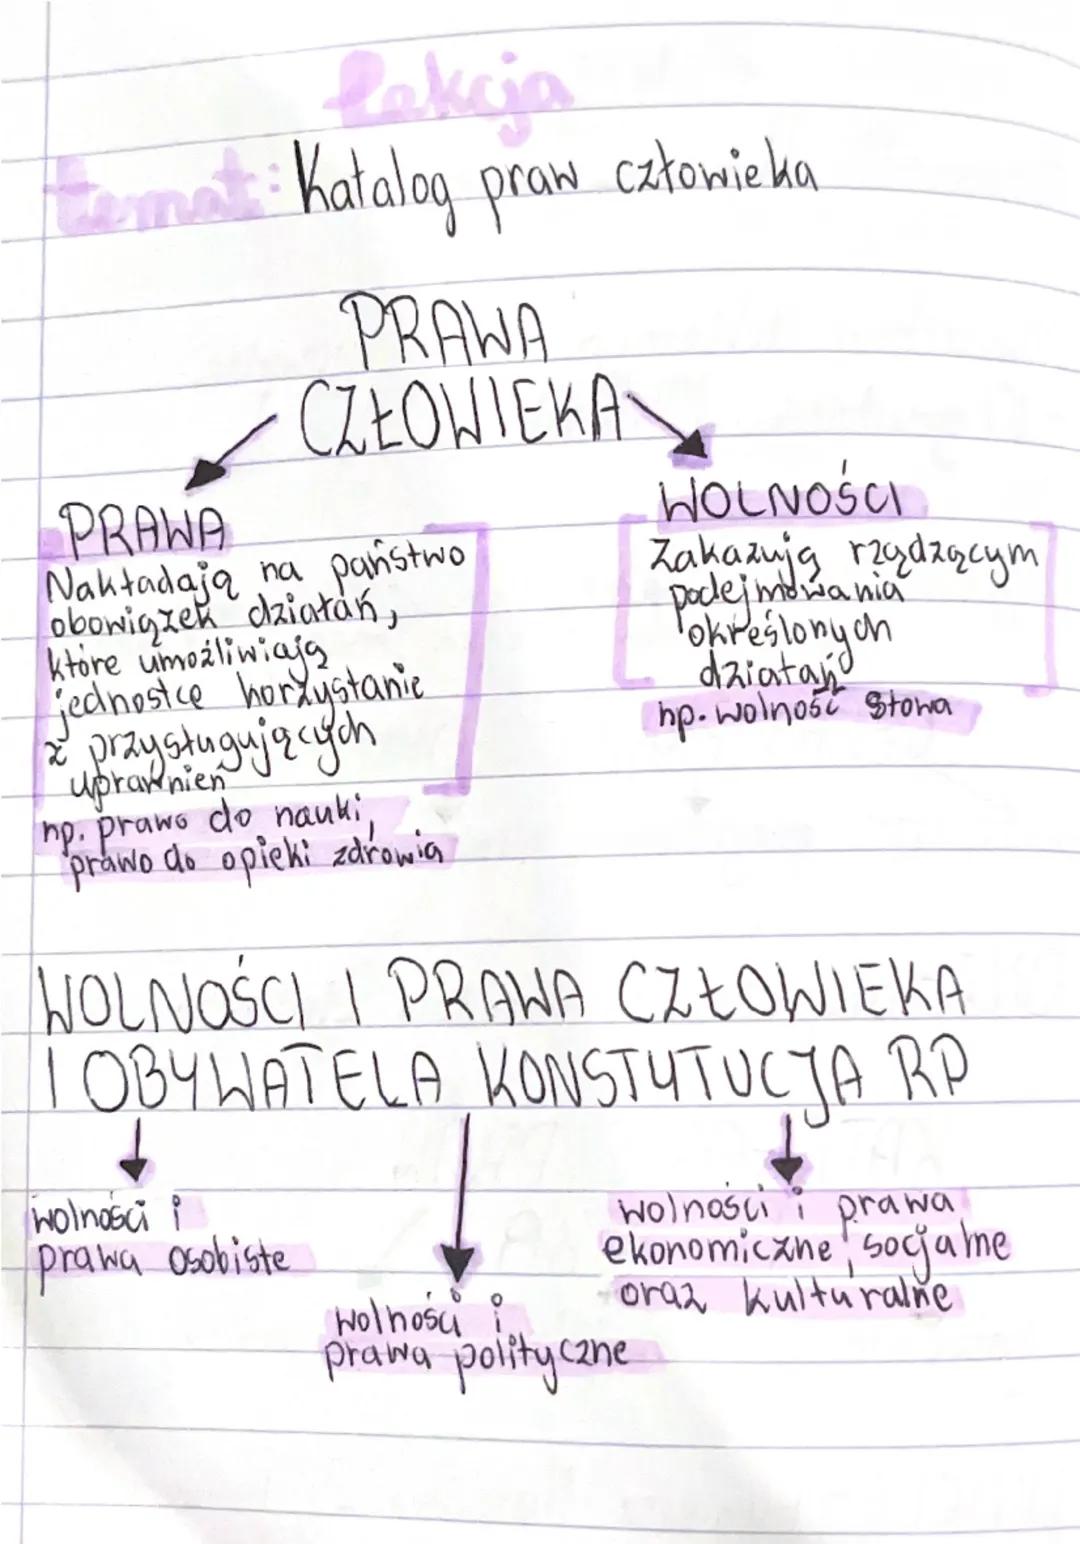 Lekcja
temat: Katalog praw człowieka
PRAWA
CZŁOWIEKA
PRAWA
Nakładają na państwo
obowiązek działań,
które umożliwiają
jednostce korzystanie
z przysługujących
uprawnień
np. prawo do nauki,
prawo do opieki zdrowia
WOLNOŚCI
Zakazują rządzącym
podejmowania
określonych
działań
np. wolność słowa
WOLNOŚCI I PRAWA CZŁOWIEKA
I OBYWATELA KONSTYTUCJA RP
wolności i
prawa osobiste
wolności i
prawa polityczne
wolności i prawa
ekonomiczne, socjalne
oraz kulturalne